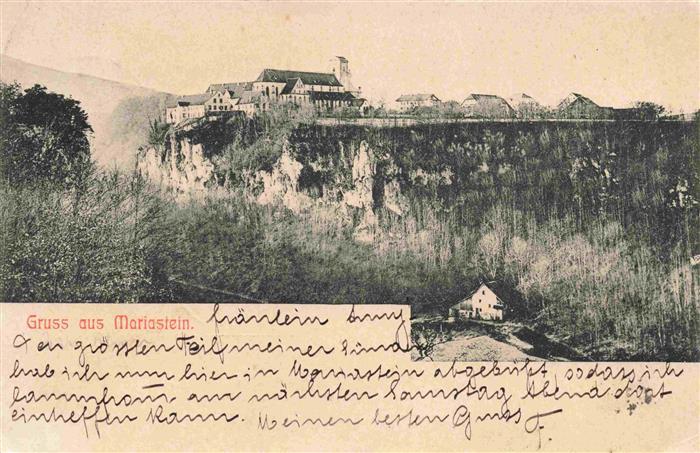 Gruss aus Mariastein.
Fräulein
Den grössten Teil meiner Sünd
hab ich nun hier in Mariastein abgebüßt, sodass ich
am nächsten Samstag Abend dort
eintreffen kann. Meinen besten Gruss F.